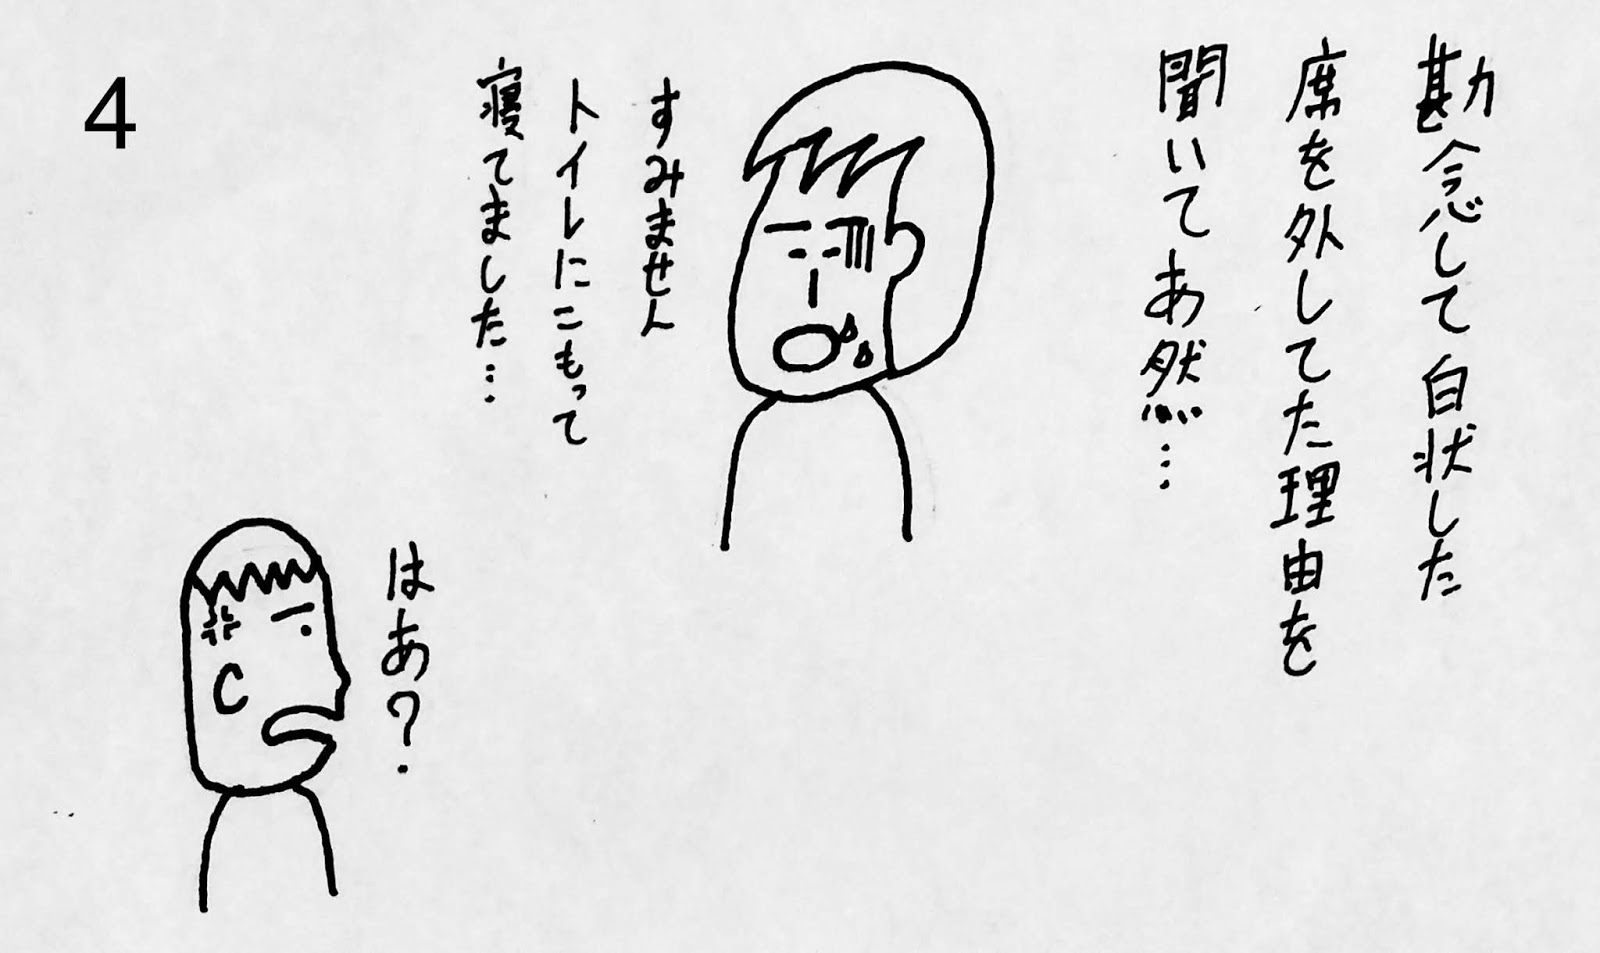 4
勘念して白状した
席を外してた理由を
聞いてあ然…
すみません
トイレにこもって
寝てました…
はあ?